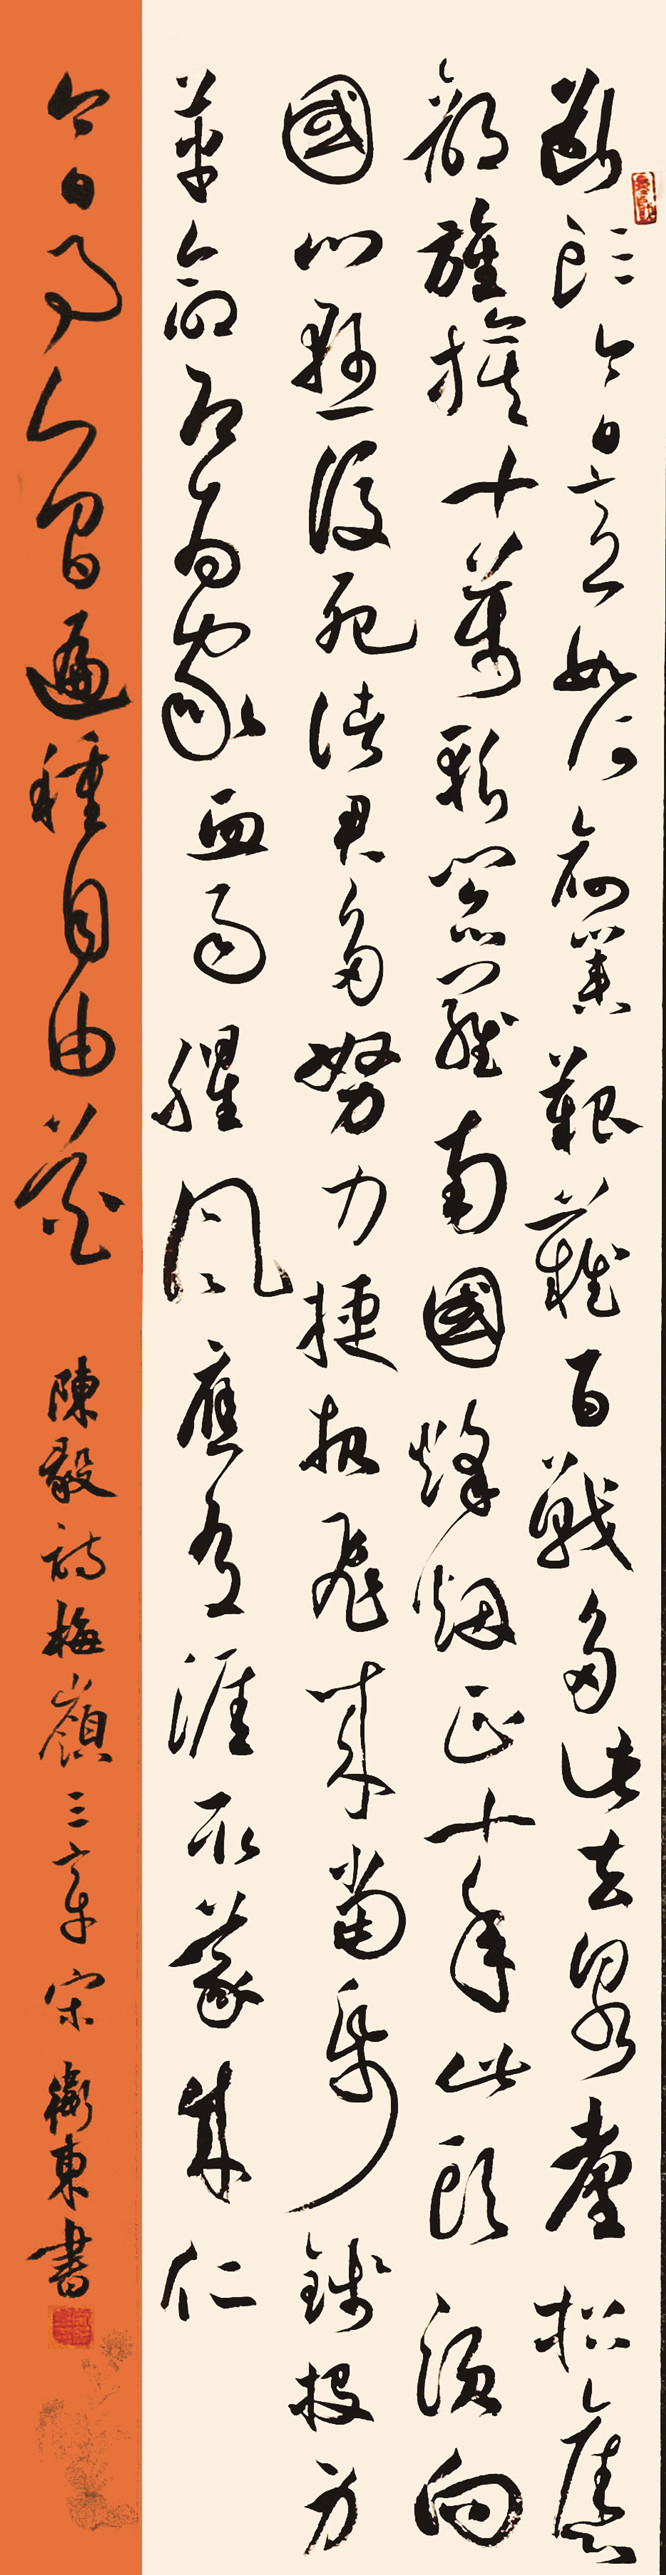 斷頭今日意如何創業艱難百戰多此去泉臺招舊
部旌旗十萬斬閻羅南國烽烟正十年此頭須向
國門懸後死諸君多努力捷報飛來當紙錢投身
革命即為家血雨腥風應有涯取義成仁
今日事人間遍種自由花 陳毅詩梅嶺三章 宋衛東書